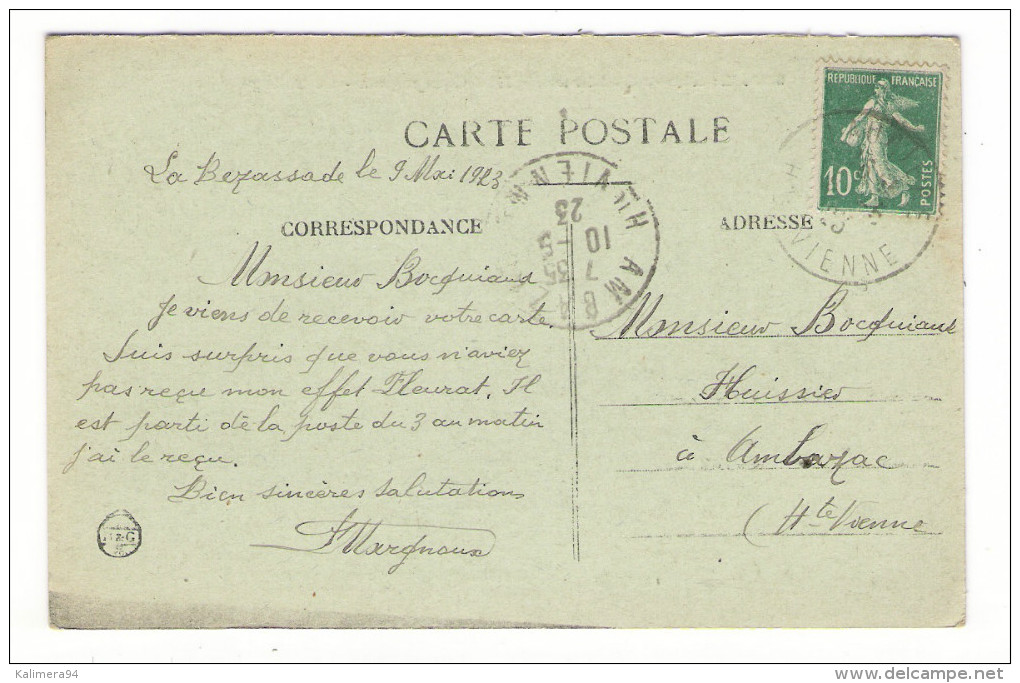 CARTE POSTALE
La Bezassade le 9 Mai 1923
CORRESPONDANCE
Monsieur Bocquiaud
Je viens de recevoir votre carte.
Suis surpris que vous n'aviez
pas reçu mon effet Fleurat. Il
est parti de la poste du 3 au matin
j'ai le reçu.
Bien sincères salutations
Margnoux
ADRESSE
Monsieur Bocquiaud
Huissier
à Ambazac
(Hte Vienne
REPUBLIQUE FRANÇAISE
10c
POSTES
VIENNE
AMB
Hte VIENNE
10 - 5
23
Kalimera94
www.delcampe.net